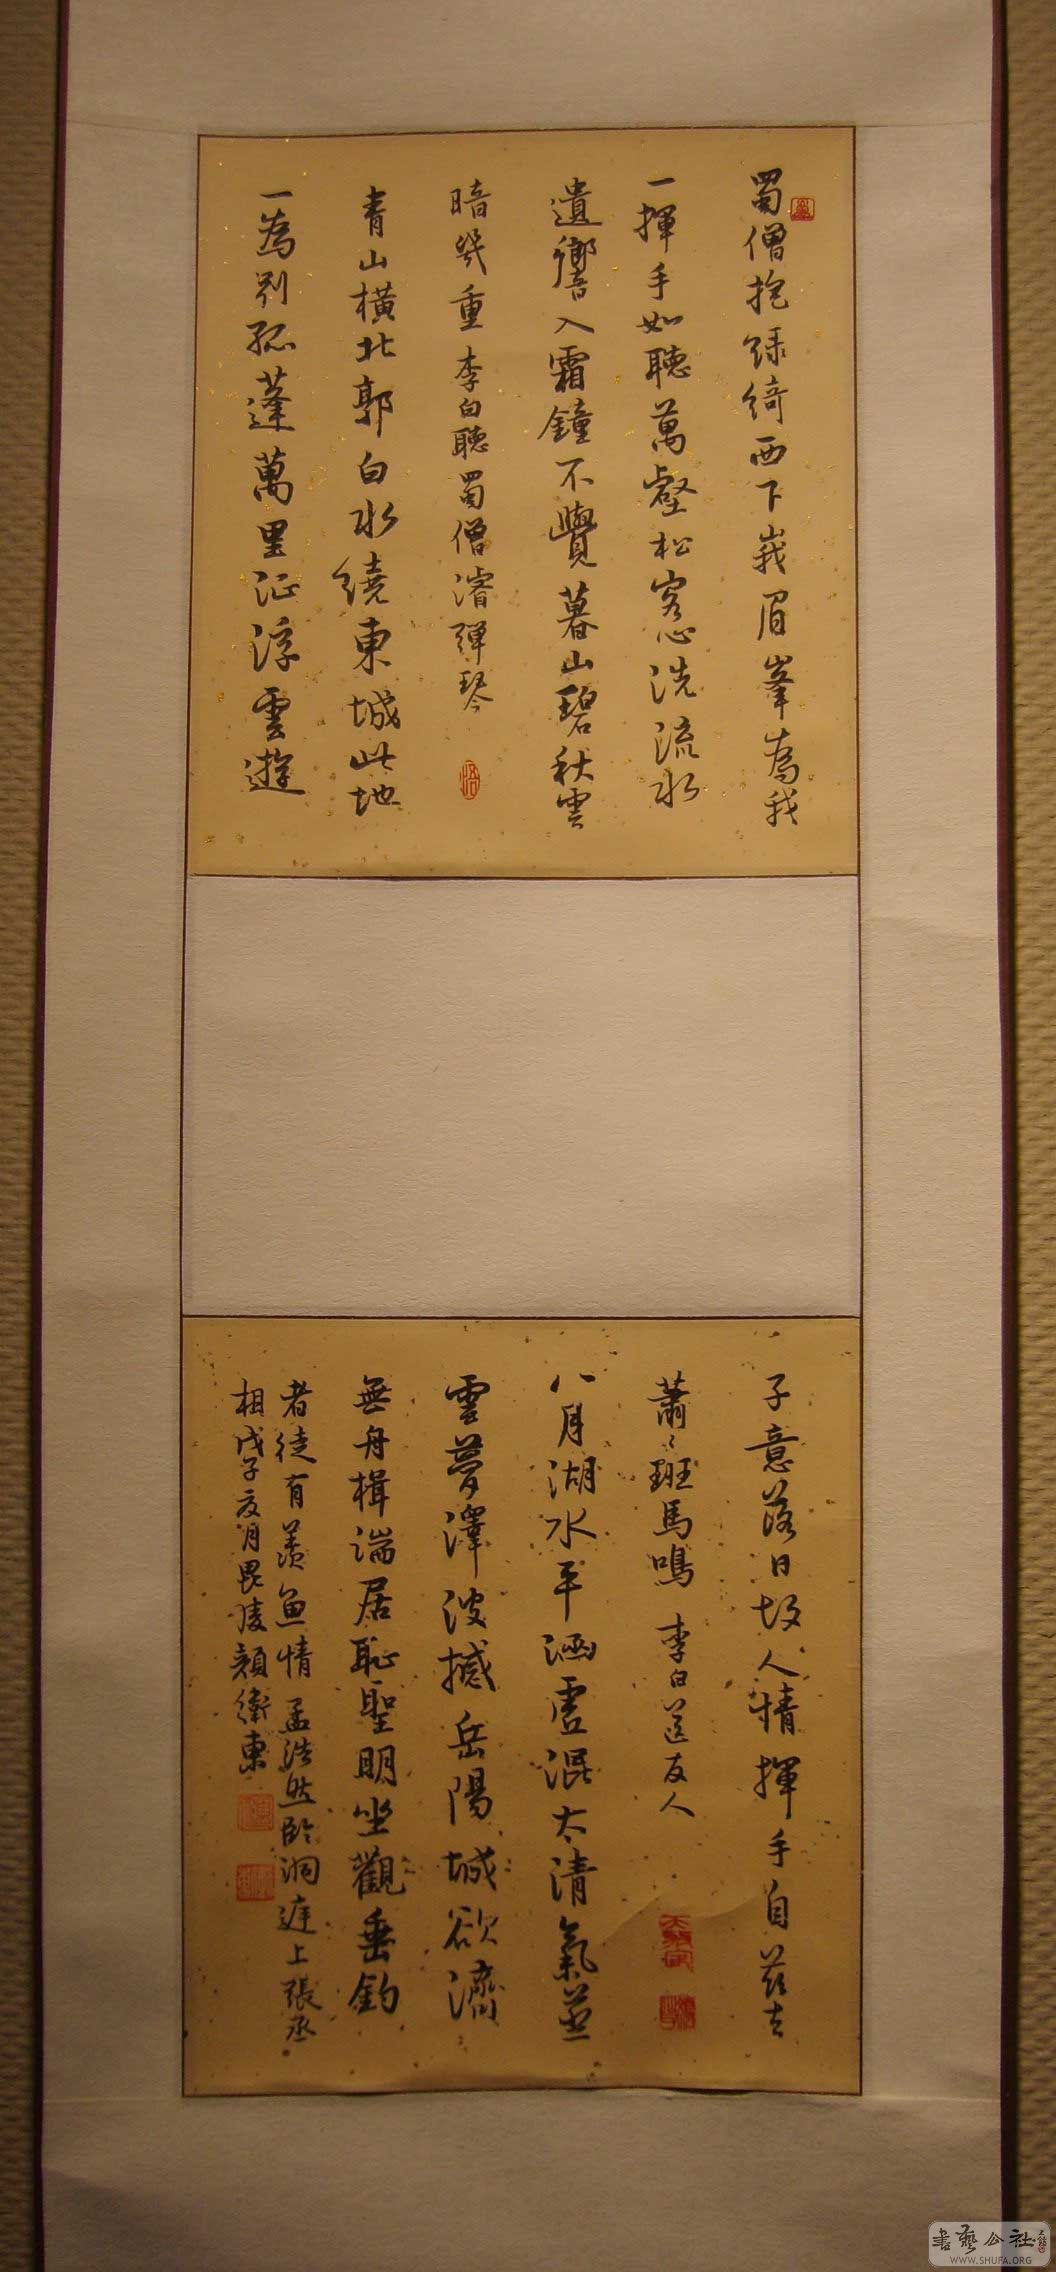 蜀僧抱綠綺西下峩眉峯為我
一揮手如聽萬壑松客心洗流水
遺響入霜鐘不覺暮山碧秋雲
暗幾重李白聽蜀僧濬彈琴
悟
青山橫北郭白水繞東城此地
一為別孤蓬萬里征浮雲遊
子意落日故人情揮手自茲去
蕭々班馬鳴 李白送友人
八月湖水平涵虛混太清氣蒸
雲夢澤波撼岳陽城欲濟
無舟楫端居恥聖明坐觀垂釣
者徒有羨魚情 孟浩然臨洞庭上張丞
相戊子夏月毘陵顏衛東
書藝公社
WWW.SHUFA.ORG